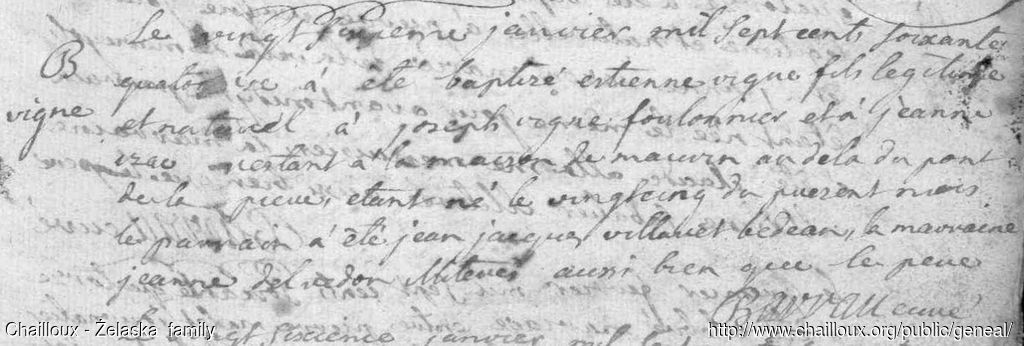 Le vingt sixieme janvier mil sept cents soixante
B
quatorze à été baptizé estienne vigne fils legitime
vigne
et naturel à joseph vigne foulonnier et à jeanne
izac restant à la maison de mauvin au dela du pont
de la pieve, etant né le vingtcinq du present mois.
le parrain à été jean jacques villaret bedeau, la marraine
jeanne delredon illiterés aussi bien que le pere
curé
le vingt sixieme janvier mil
Chailloux - Želaska family
http://www.chailloux.org/public/geneal/